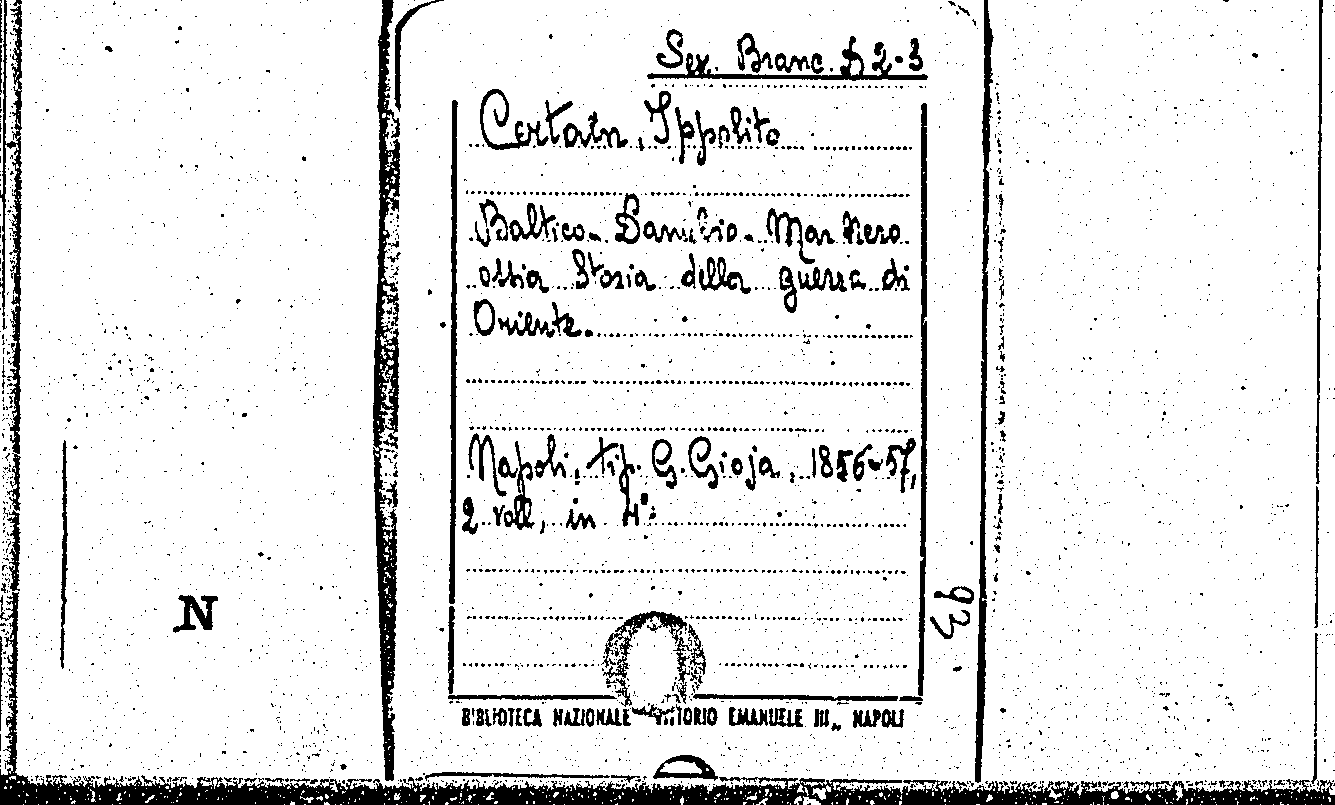 Sez. Branc. D 2-3
Certain, Ippolito
Baltico. Danubio. Mar Nero
ossia Storia della guerra di
Oriente.
Napoli, tip. G. Gioja, 1856-57,
2 voll, in 4°.
93
N
BIBLIOTECA NAZIONALE "VITTORIO EMANUELE III„ NAPOLI